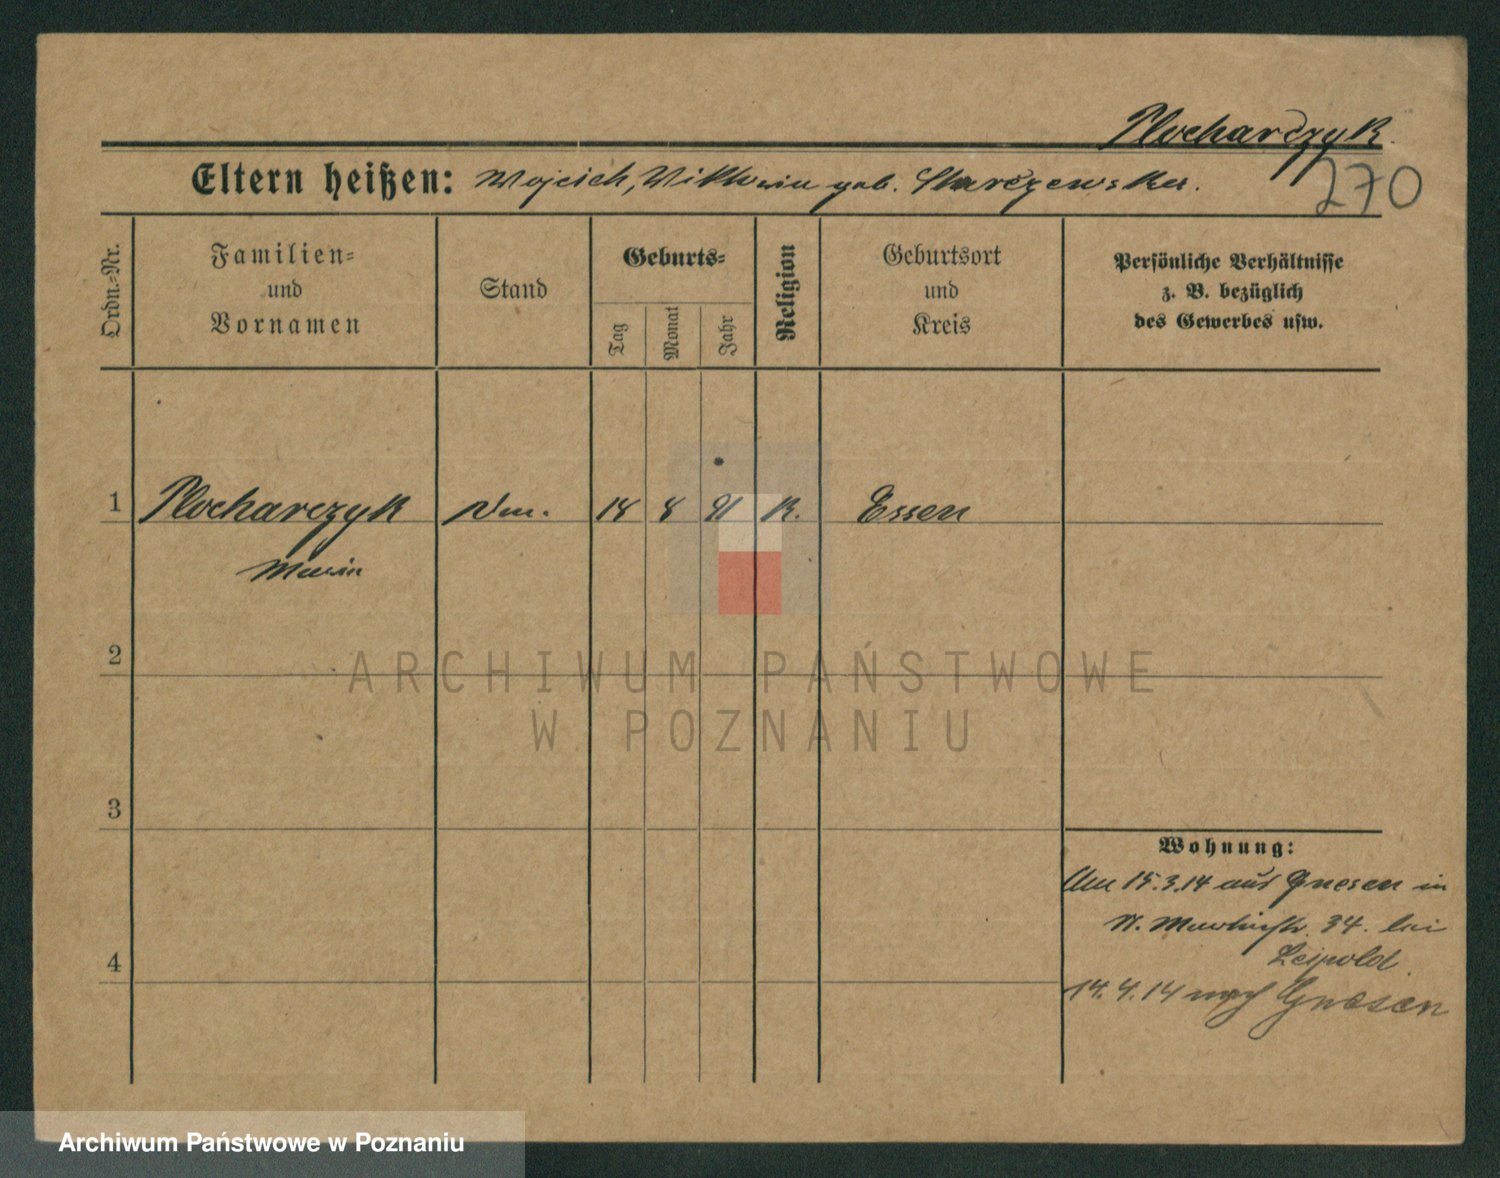 Plocharczyk.
Eltern heißen: Wojcich, Viktoria geb. Starczewska.
270
Ordn.=Nr.
Familien=
und
Vornamen
Stand
Geburts=
Tag
Monat
Jahr
Religion
Geburtsort
und
Kreis
Persönliche Verhältnisse
z. B. bezüglich
des Gewerbes usw.
1 Plocharczyk 18 8 91 K. Essen
Maria
2
3
4
Wohnung:
Am 15.3.14 aus Gnesen in
St. Martinstr. 34. bei
Leipold.
14.4.14 nach Gnesen
ARCHIWUM PAŃSTWOWE
W POZNANIU
Archiwum Państwowe w Poznaniu